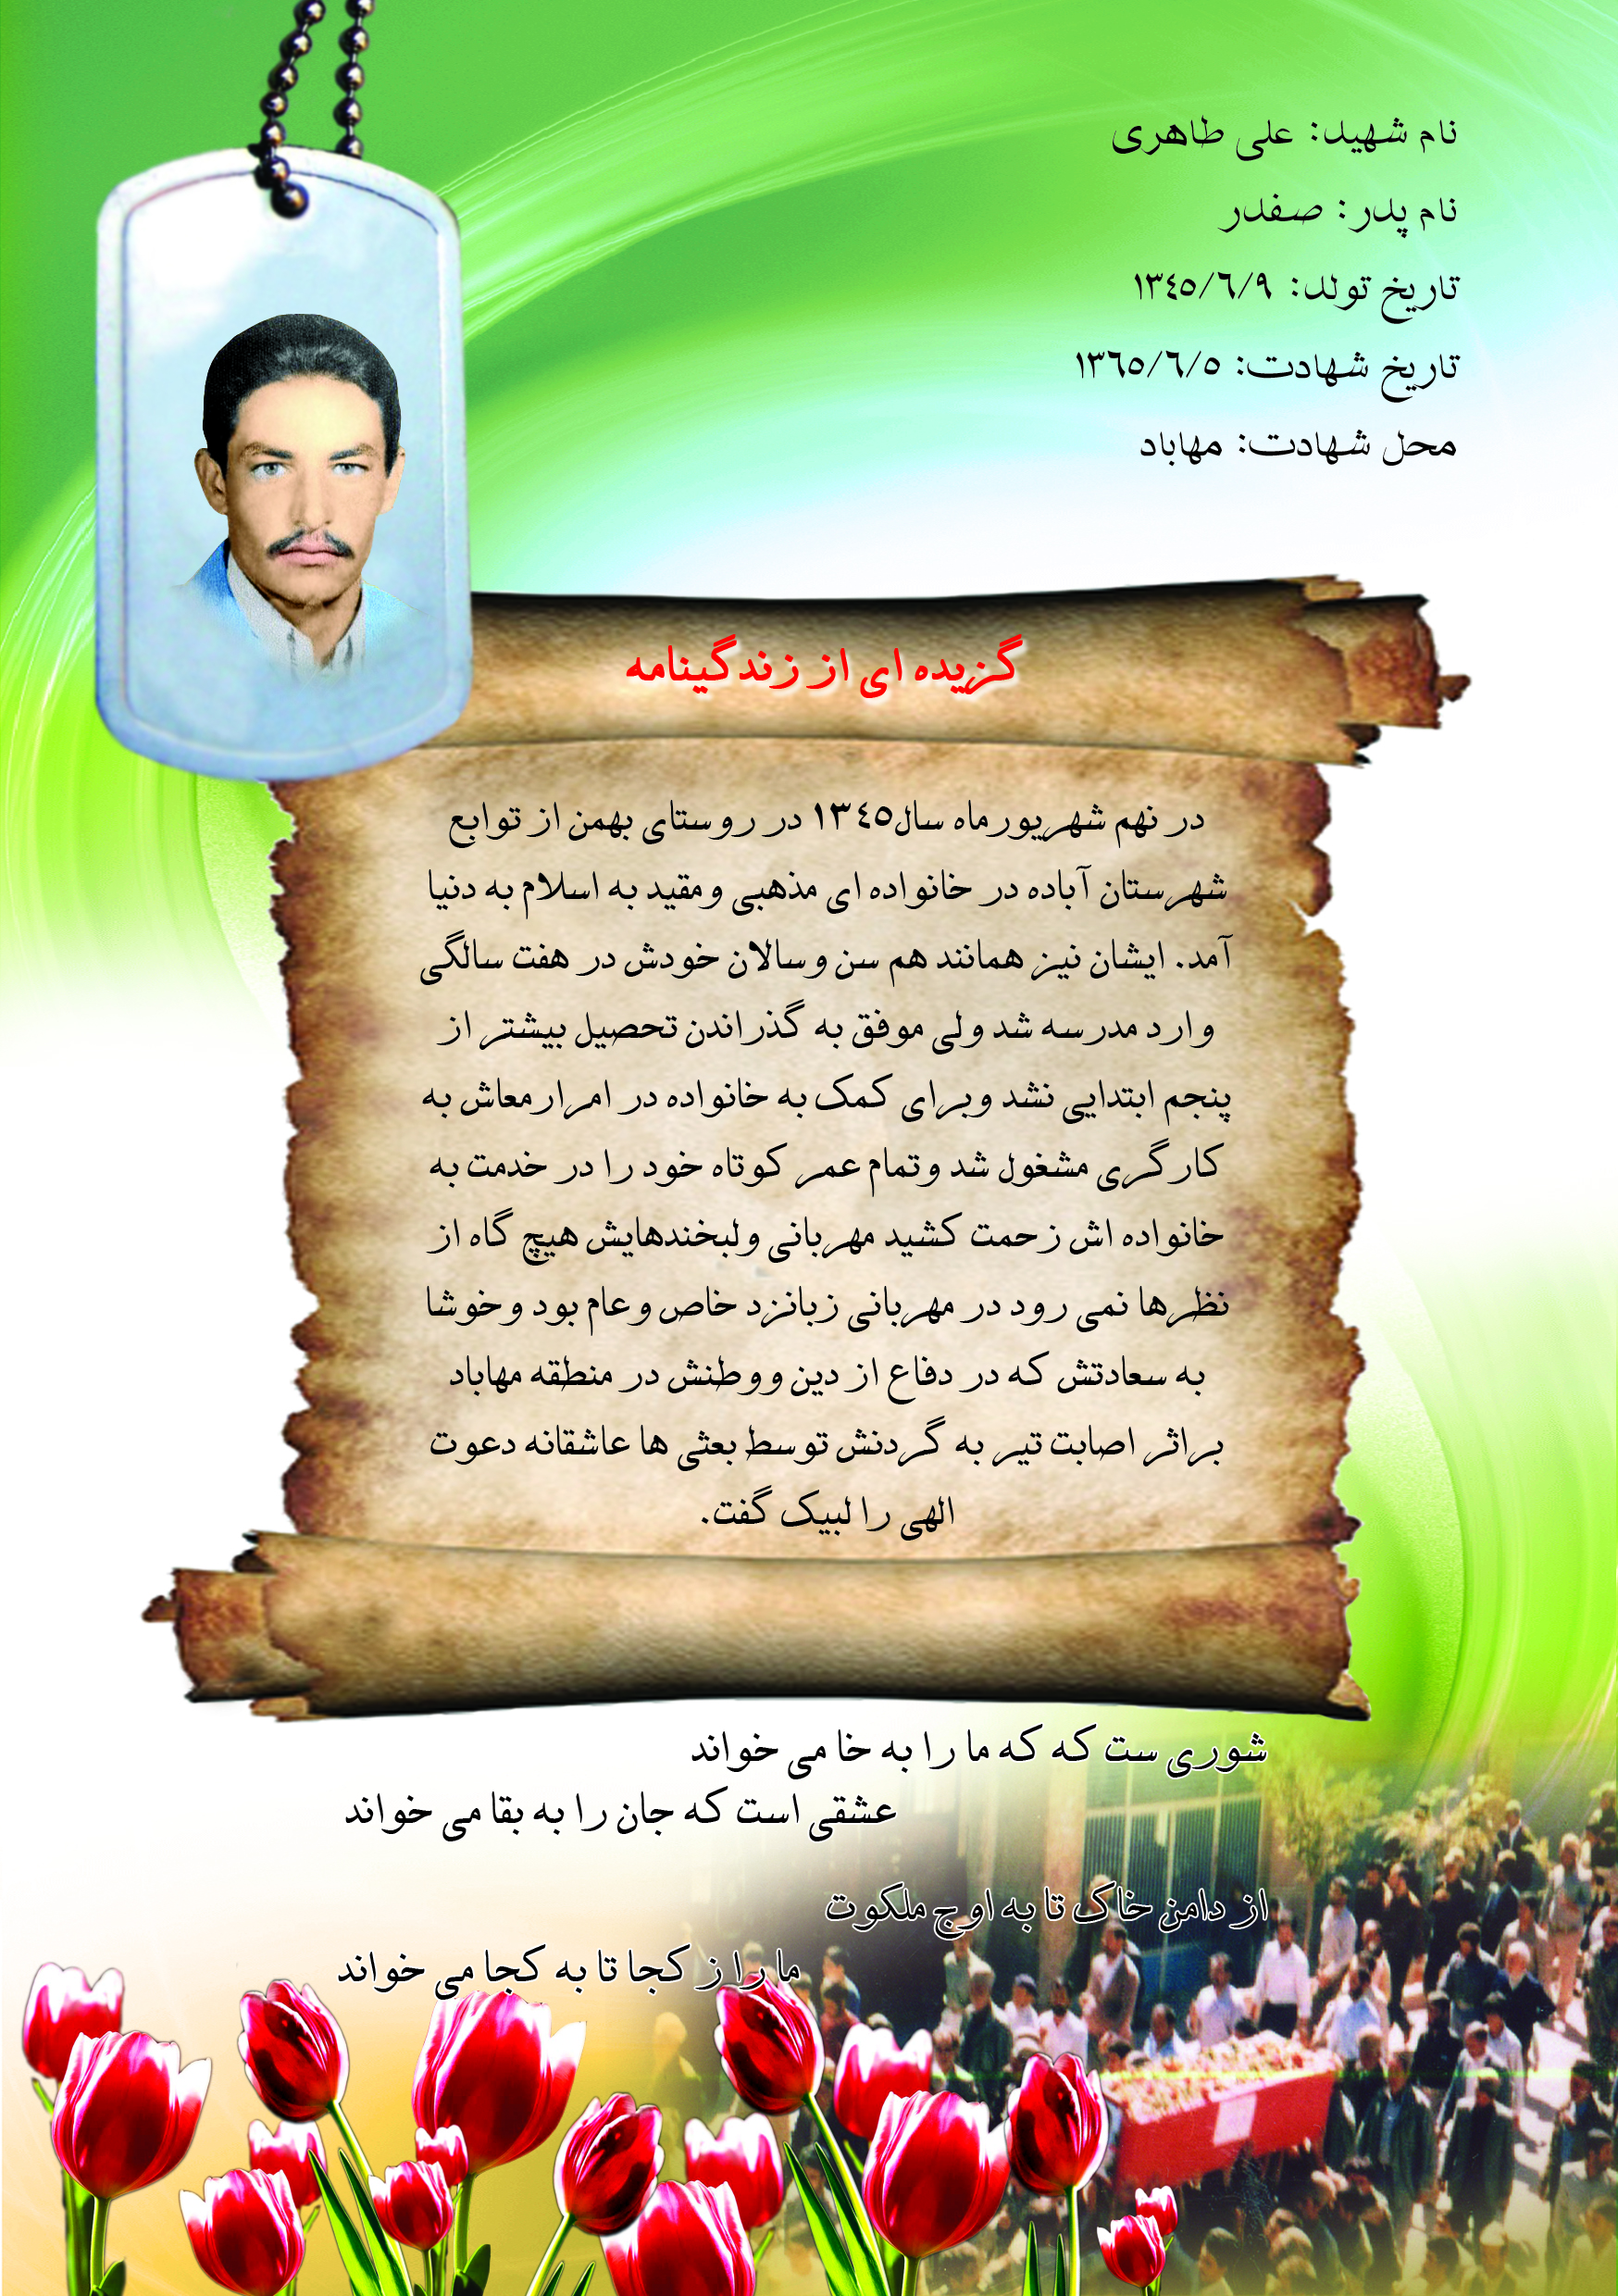 نام شهید: علی طاهری
نام پدر: صفدر
تاریخ تولد: ۱۳٤٥/٦/۹
تاریخ شهادت: ۱۳٦٥/٦/٥
محل شهادت: مهاباد
گزیده ای از زندگینامه
در نهم شهریورماه سال۱۳٤٥ در روستای بهمن از توابع
شهرستان آباده در خانواده ای مذهبی ومقید به اسلام به دنیا
آمد. ایشان نیز همانند هم سن وسالان خودش در هفت سالگی
وارد مدرسه شد ولی موفق به گذراندن تحصیل بیشتر از
پنجم ابتدایی نشد وبرای کمک به خانواده در امرارمعاش به
کارگری مشغول شد وتمام عمر کوتاه خود را در خدمت به
خانواده اش زحمت کشید مهربانی ولبخندهایش هیچ گاه از
نظرها نمی رود در مهربانی زبانزد خاص وعام بود وخوشا
به سعادتش که در دفاع از دین ووطنش در منطقه مهاباد
براثر اصابت تیر به گردنش توسط بعثی ها عاشقانه دعوت
الهی را لبیک گفت.
شوری ست که که ما را به خا می خواند
عشقی است که جان را به بقا می خواند
از دامن خاک تا به اوج ملکوت
ما را ز کجا تا به کجا می خواند